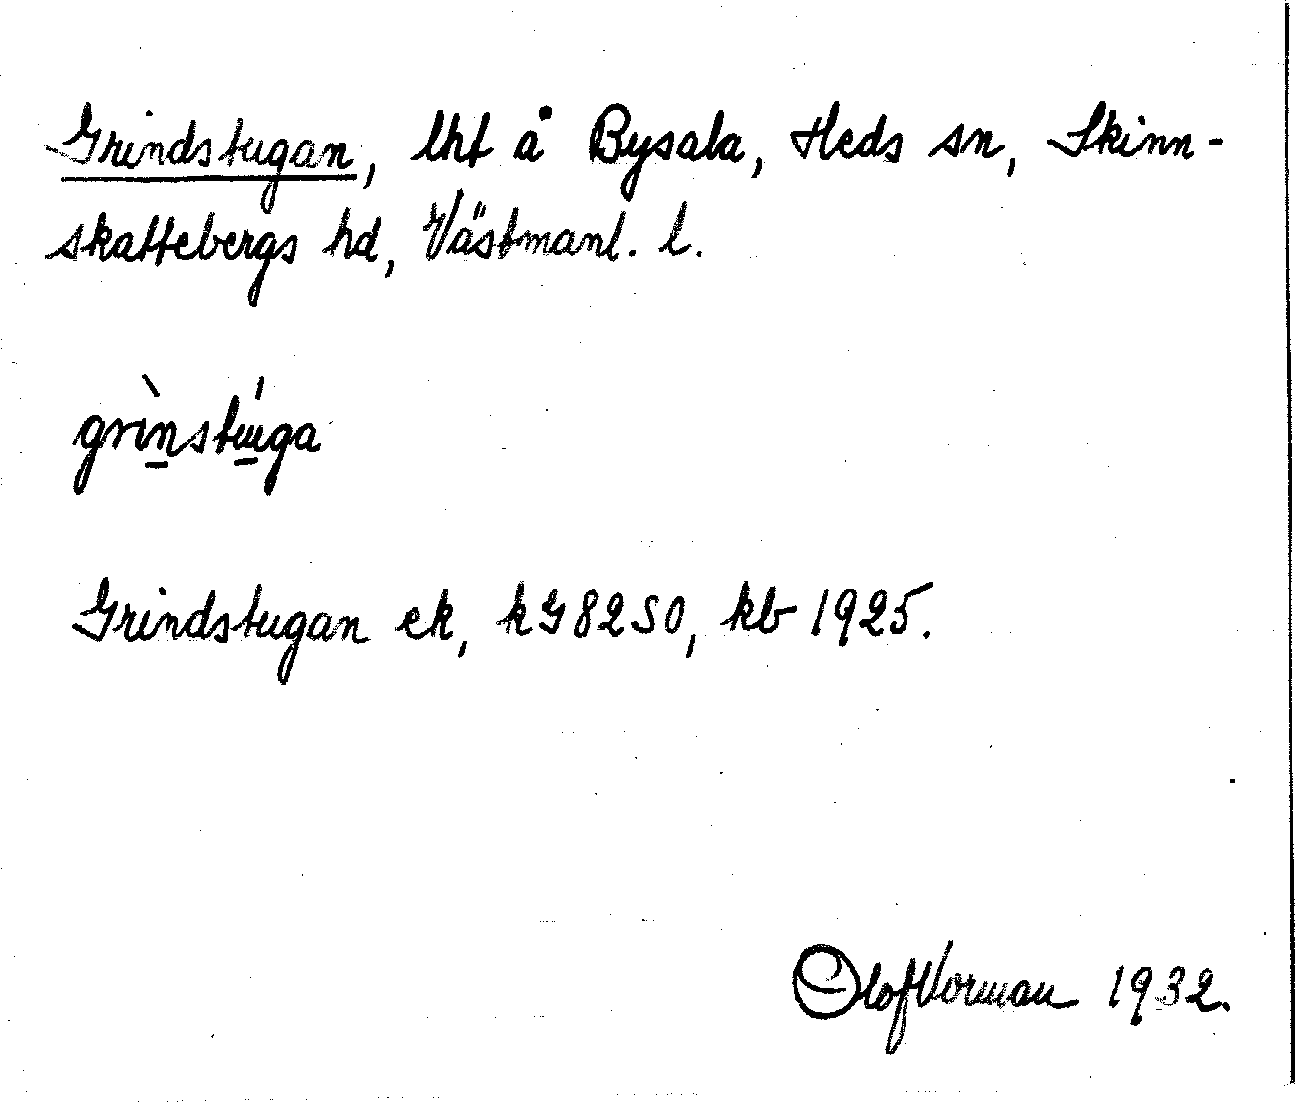 Grindstugan, lht å Bysala, Heds sn, Skinn-
skattebergs hd, Västmanl. l.
grìnstúga
Grindstugan ek, kG8250, kb 1925.
Olof Vorman 1932.